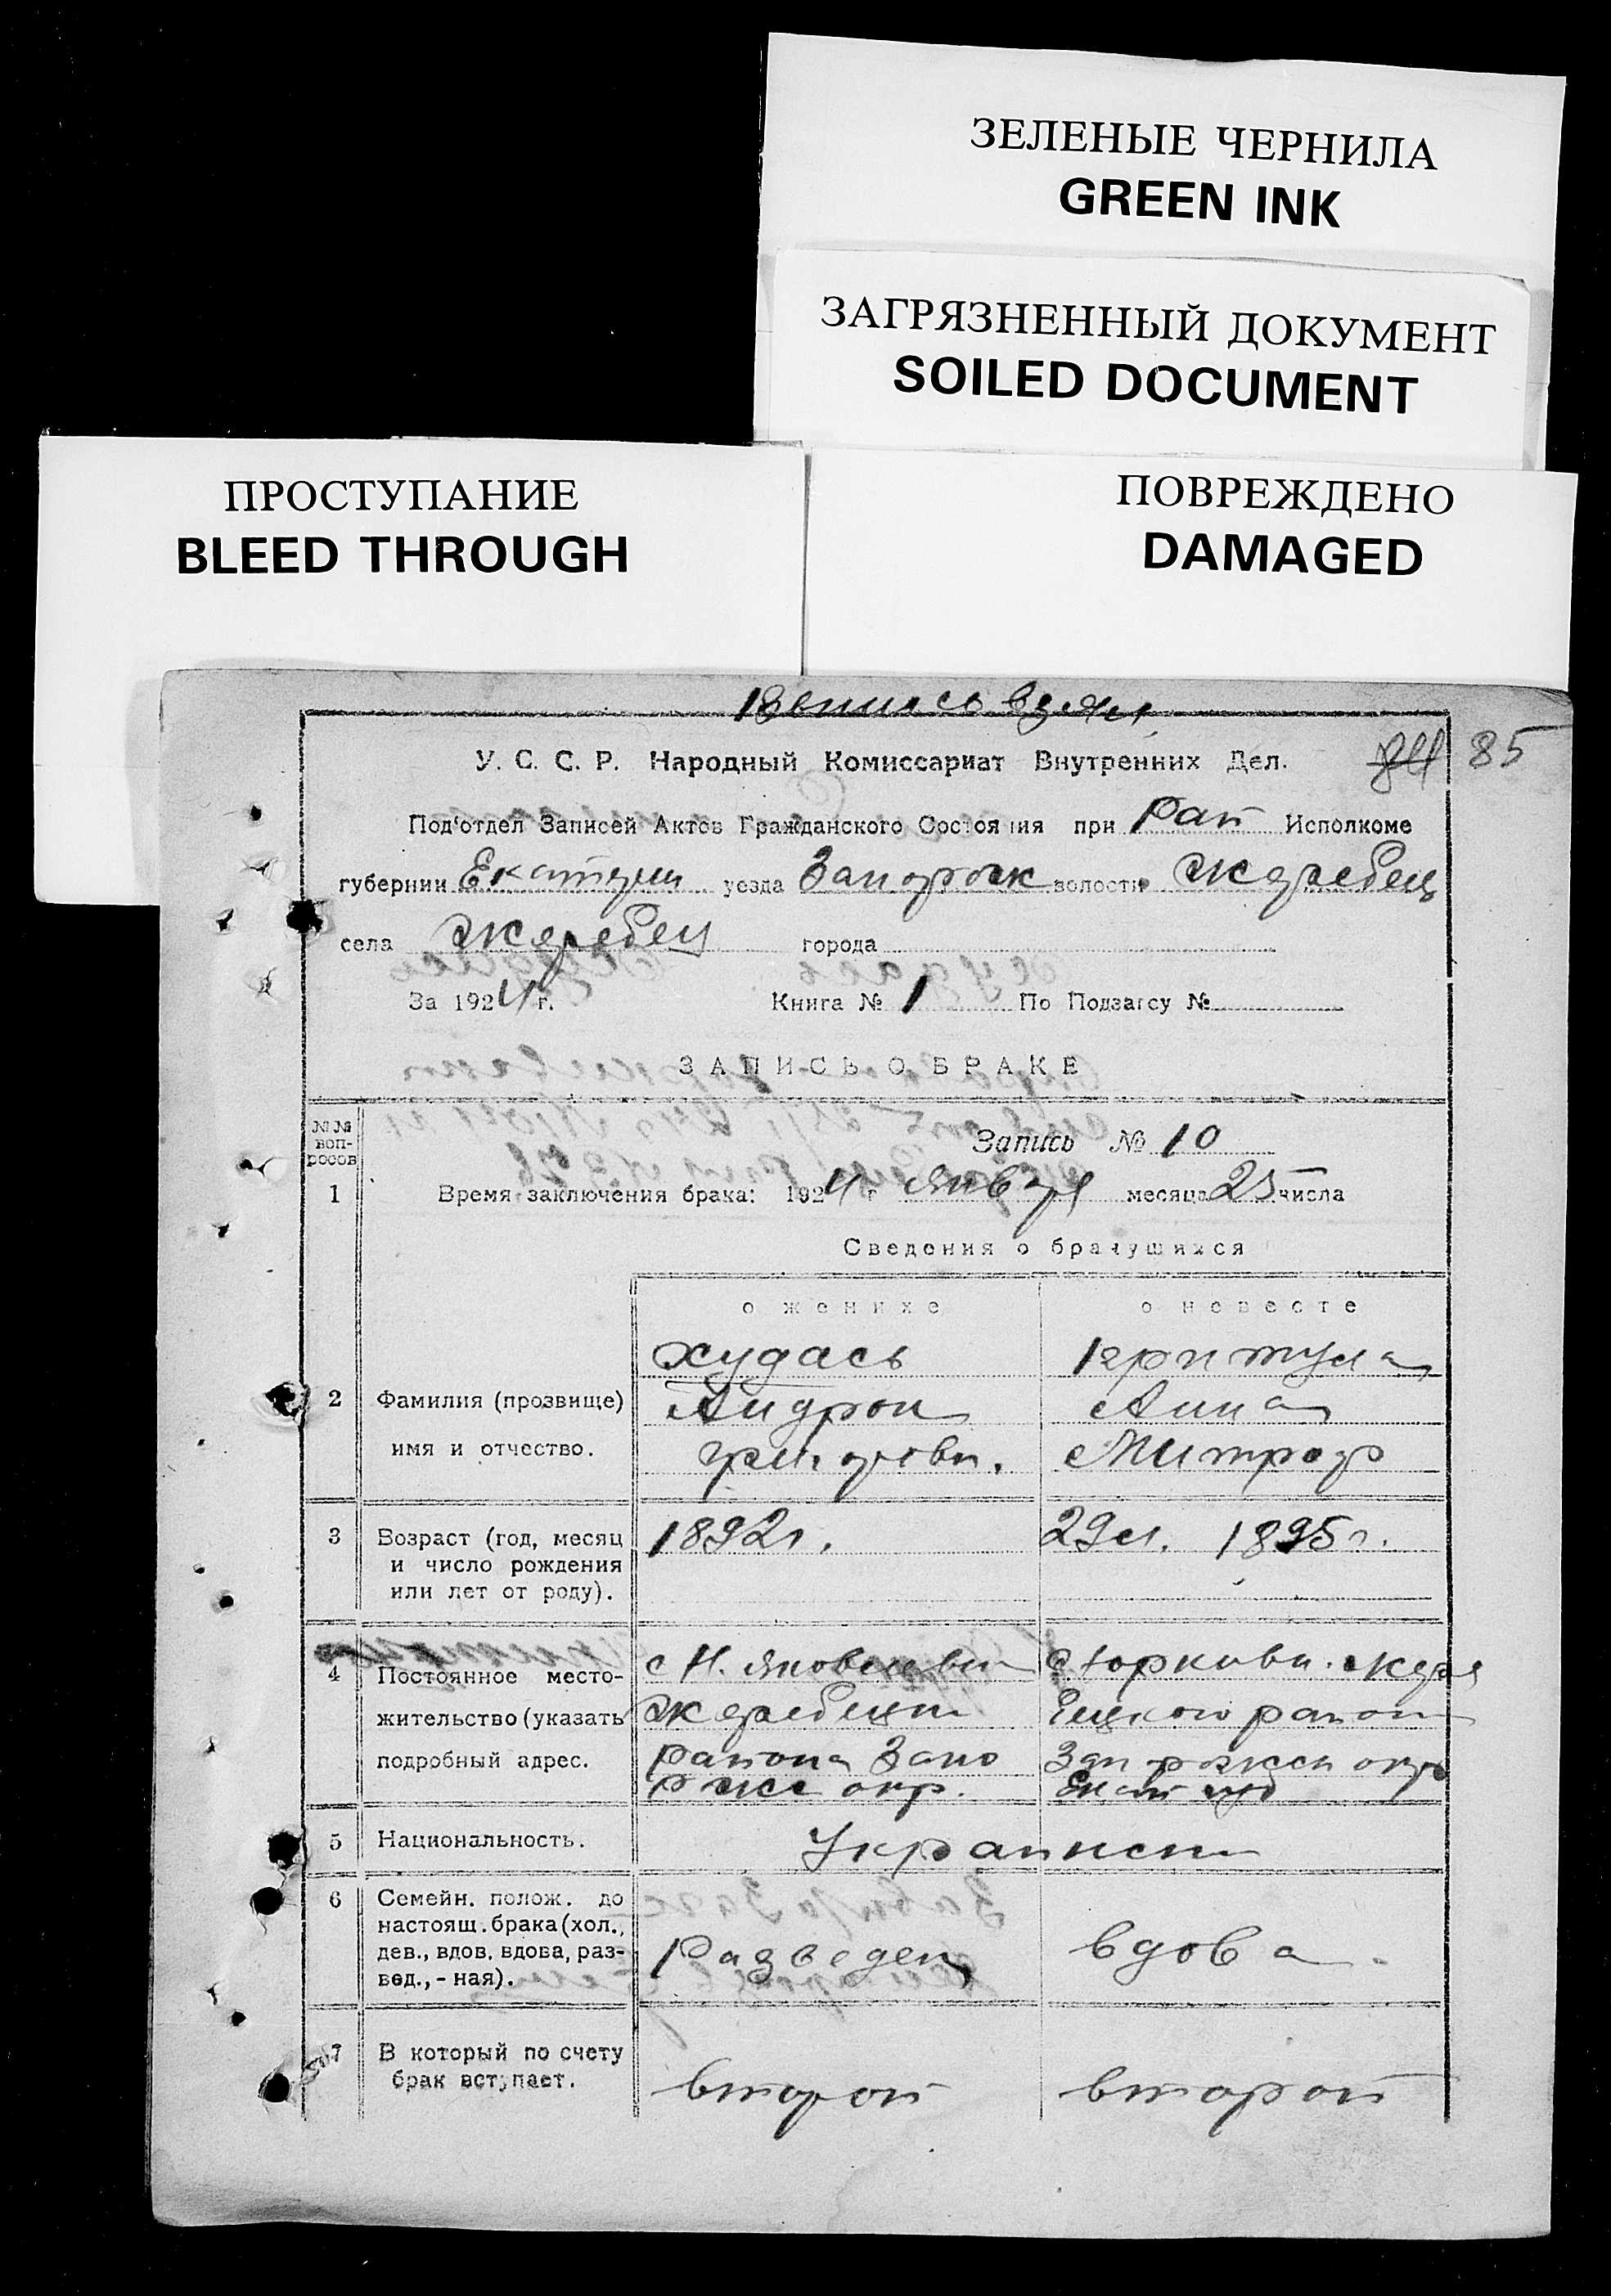 ЗЕЛЕНЫЕ ЧЕРНИЛА
GREEN INK
ЗАГРЯЗНЕННЫЙ ДОКУМЕНТ
SOILED DOCUMENT
ПРОСТУПАНИЕ
BLEED THROUGH
ПОВРЕЖДЕНО
DAMAGED
85
У. С. С. Р. Народный Комиссариат Внутренних Дел.
Под'отдел Записей Актов Гражданского Состояния при Рай Исполкоме
губернии Екатерин уезда Запорож волости Жеребец
села Жеребец города
За 1924 г. Книга № 1 По Подзагсу №
ЗАПИСЬ О БРАКЕ
№№ воп-росов
Запись № 10
1 Время заключения брака: 1924 г января месяца 25 числа
Сведения о брачущихся
о женихе о невесте
Худась
2 Фамилия (прозвище) Андрон Анна
имя и отчество. Митроф
3 Возраст (год, месяц 1892 г. 29 л. 1895 г.
и число рождения
или лет от роду).
4 Постоянное место- с Н. Яковлевки с Юрковки Жере
жительство (указать Жеребецки бецкого район
подробный адрес. района Запо Запорожск окр
рожс окр. Екат губ
5 Национальность. Украински
6 Семейн. полож. до
настоящ. брака (хол.,
дев., вдов, вдова, раз- Разведен вдова
вед., - ная).
7 В который по счету
брак вступает. второй второй